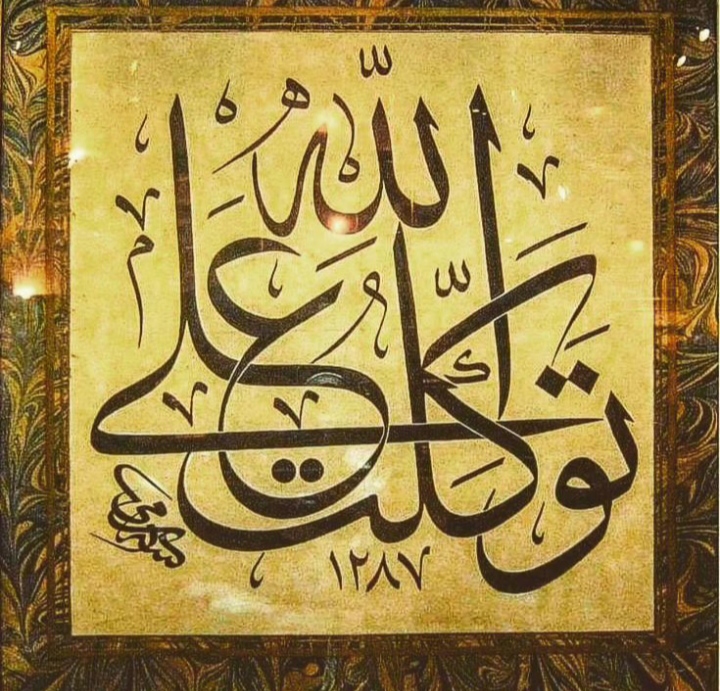 توكلت على الله
١٢٨٧